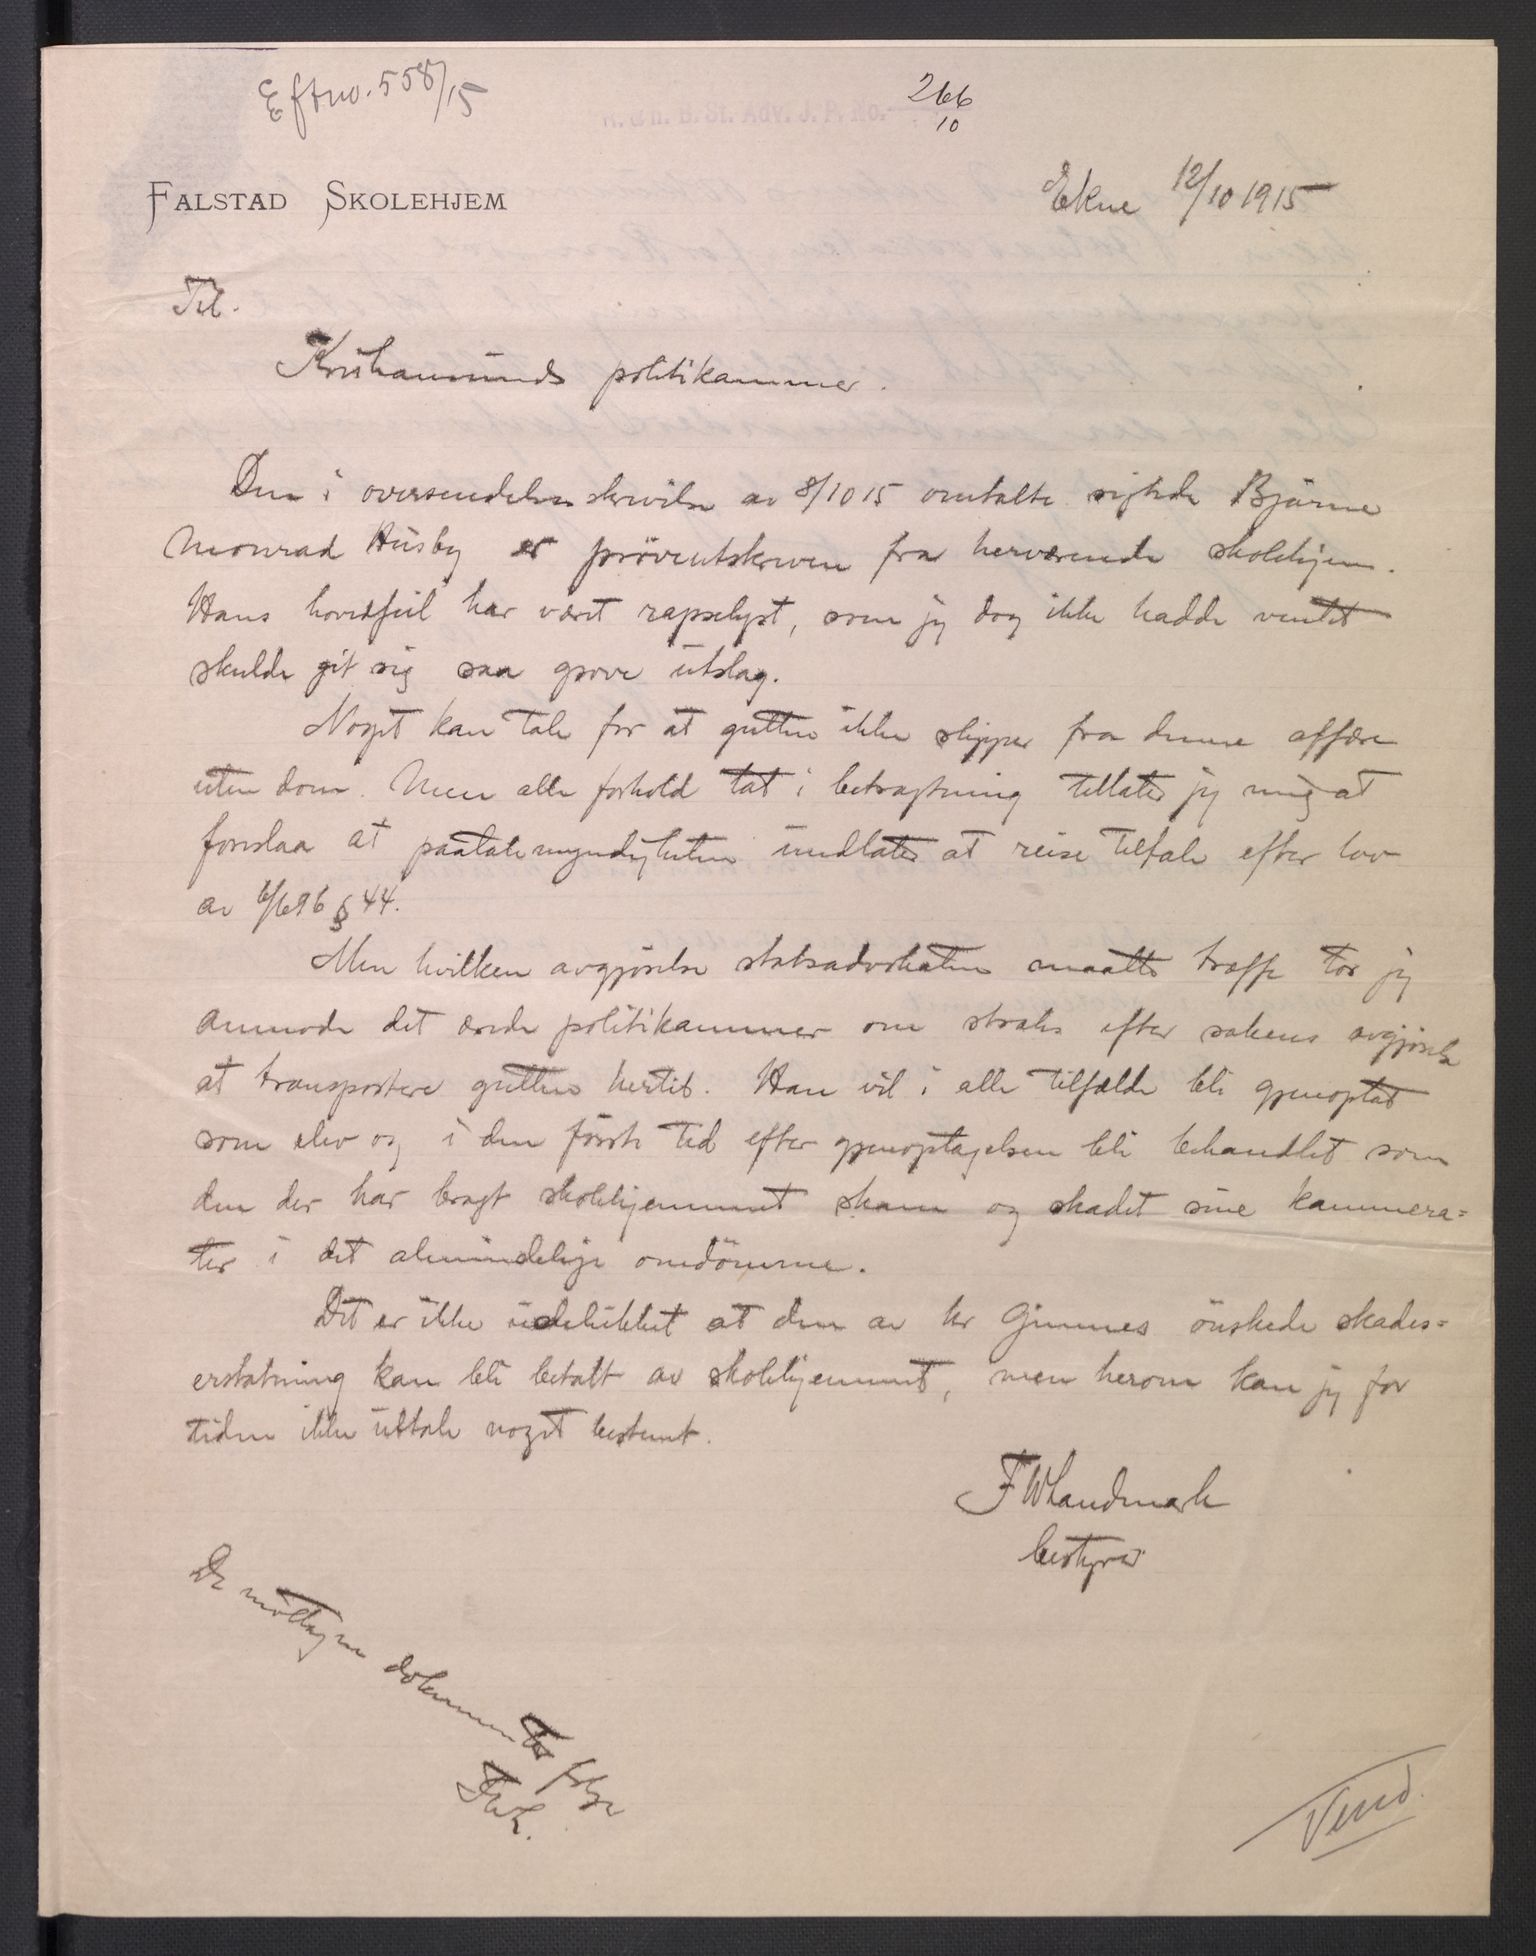 Eftno. 558/15
266
10
R. & N. B. St. Adv. J. P. No.
FALSTAD SKOLEHJEM
Ekne 12/10 1915
Til.
Kristiansunds politikammer.
Den i oversendelsesskrivelse av 8/10 15 omtalte sigtede Bjarne
Monrad Husby er prøveutskreven fra herværende skolehjem.
Hans hovedfeil har været rapselyst, som jeg dog ikke hadde ventet
skulde git sig saa grove utslag.
Noget kan tale for at gutten ikke slipper fra denne affære
uten dom. Men alle forhold tat i betragtning tillater jeg mig at
foreslaa at paatalemyndigheten undlater at reise tiltale efter lov
av 6/6 96 § 44.
Men hvilken avgjørelse statsadvokaten maatte træffe tør jeg
anmode det ærede politikammer om straks efter sakens avgjørelse
at transportere gutten hertil. Han vil i alle tilfælde bli gjenoptat
som elev og i den første tid efter gjenoptagelsen bli behandlet som
den der har bragt skolehjemmet skam og skadet sine kammera=
ter i det almindelige omdømme.
Det er ikke udelukket at den av hr Gimnes ønskede skades=
erstatning kan bli betalt av skolehjemmet, men herom kan jeg for
tiden ikke uttale noget bestemt.
F W Landmark
bestyrer
De mottagne dokumenter følge
FWL.
Vend.